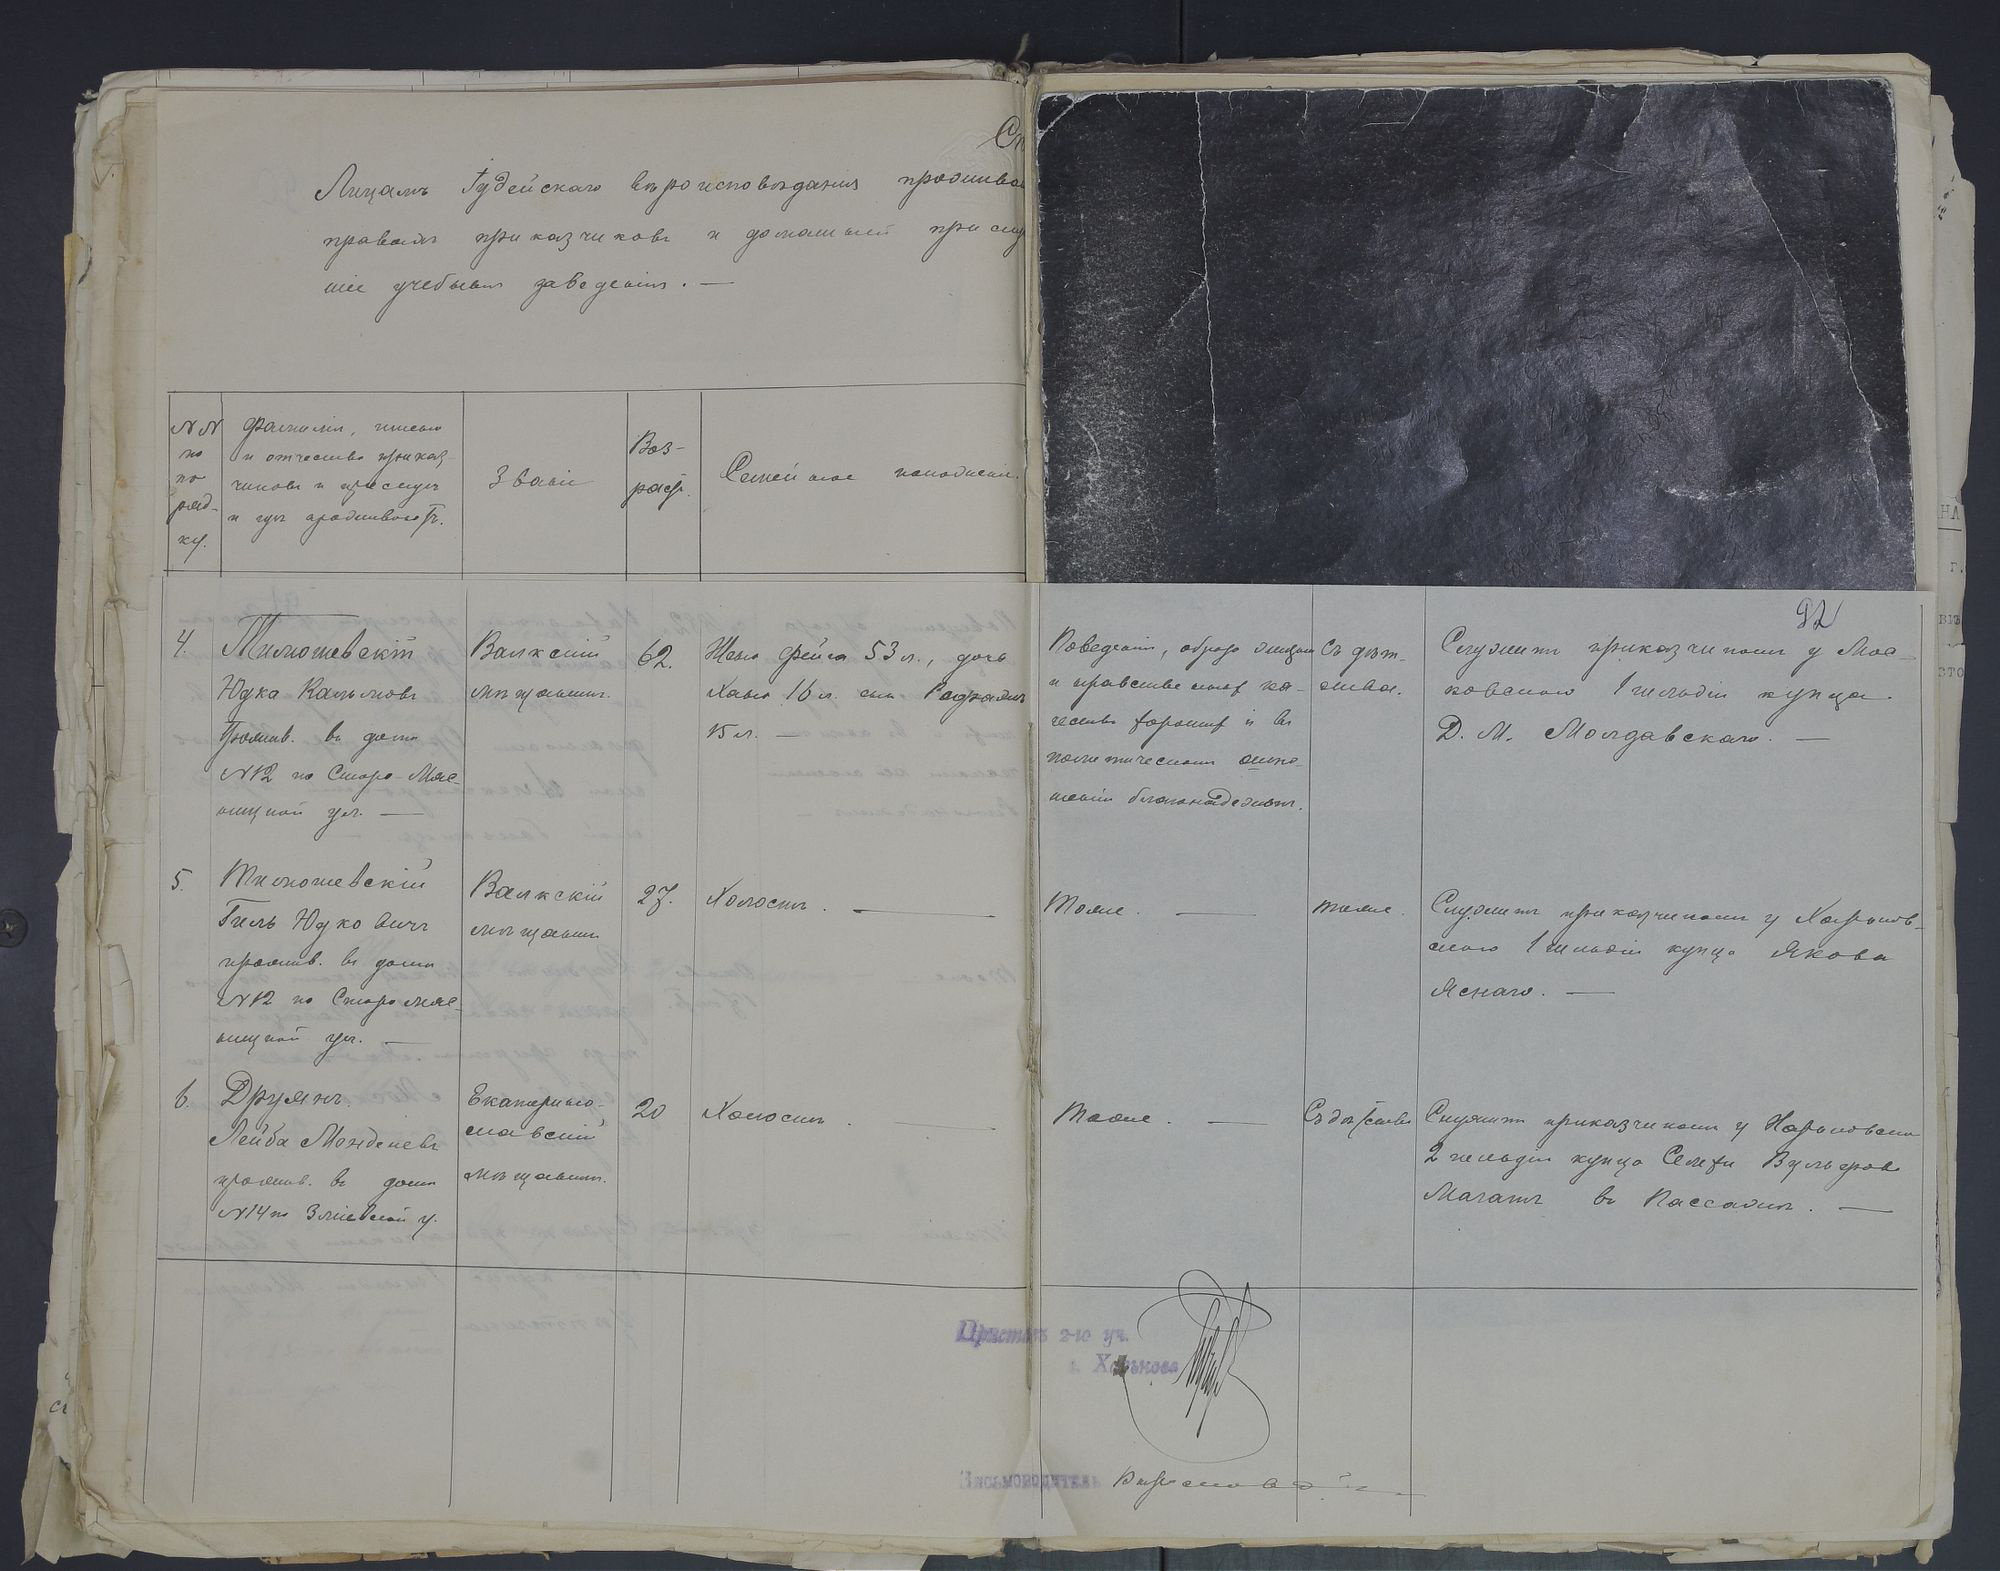 Сп
Лицамъ Іудейскаго вѣроисповѣданія прожива
правамъ приказчиковъ и домашней прислу
шіе учебныя заведенія. —
№№ по по ряд- ку.
Фамилія, имена
и отчество приказ-
чиковъ и прислуги
и гдѣ проживаютъ.
Званіе
Воз-
раст.
Семейное положеніе.
92
4.
Тилюшевскій
Юдка Кальмовъ
Прожив. въ домѣ
№12 по Старо-Мяс-
ницкой ул. —
Валкскій
мѣщанинъ.
62.
Жена Фейга 53 л., дочь
Хана 16 л. сынъ
15 л. —
Поведенія, образа жизни
и нравственныхъ ка-
чествъ хорошихъ и въ
политическомъ отно-
шеніи благонадеженъ.
Съ дѣт-
ства.
Служитъ приказчикомъ у Мос-
ковскаго 1 гильдіи купца
Д. М. Молдавскаго. —
5.
Тилюшевскій
Гиль Юдковичъ
прожив. въ домѣ
№12 по Старо Мяс-
ницкой ул. —
Валкскій
мѣщанинъ
27.
Холостъ. —
Тоже. —
тоже.
Служитъ приказчикомъ у Харьков-
скаго 1 гильдіи купца Якова
Яснаго. —
6.
Друянъ
Лейба Менделевъ
прожив. въ домѣ
№14 по Зміевской у.
Екатерино-
славскій
мѣщанинъ.
20
Холостъ. —
Тоже. —
Съ дѣтства
Служитъ приказчикомъ у Харьковскаго
2 гильдіи купца
въ Пассажѣ. —
Приставъ 2-го уч.
г. Харькова
Письмоводитель